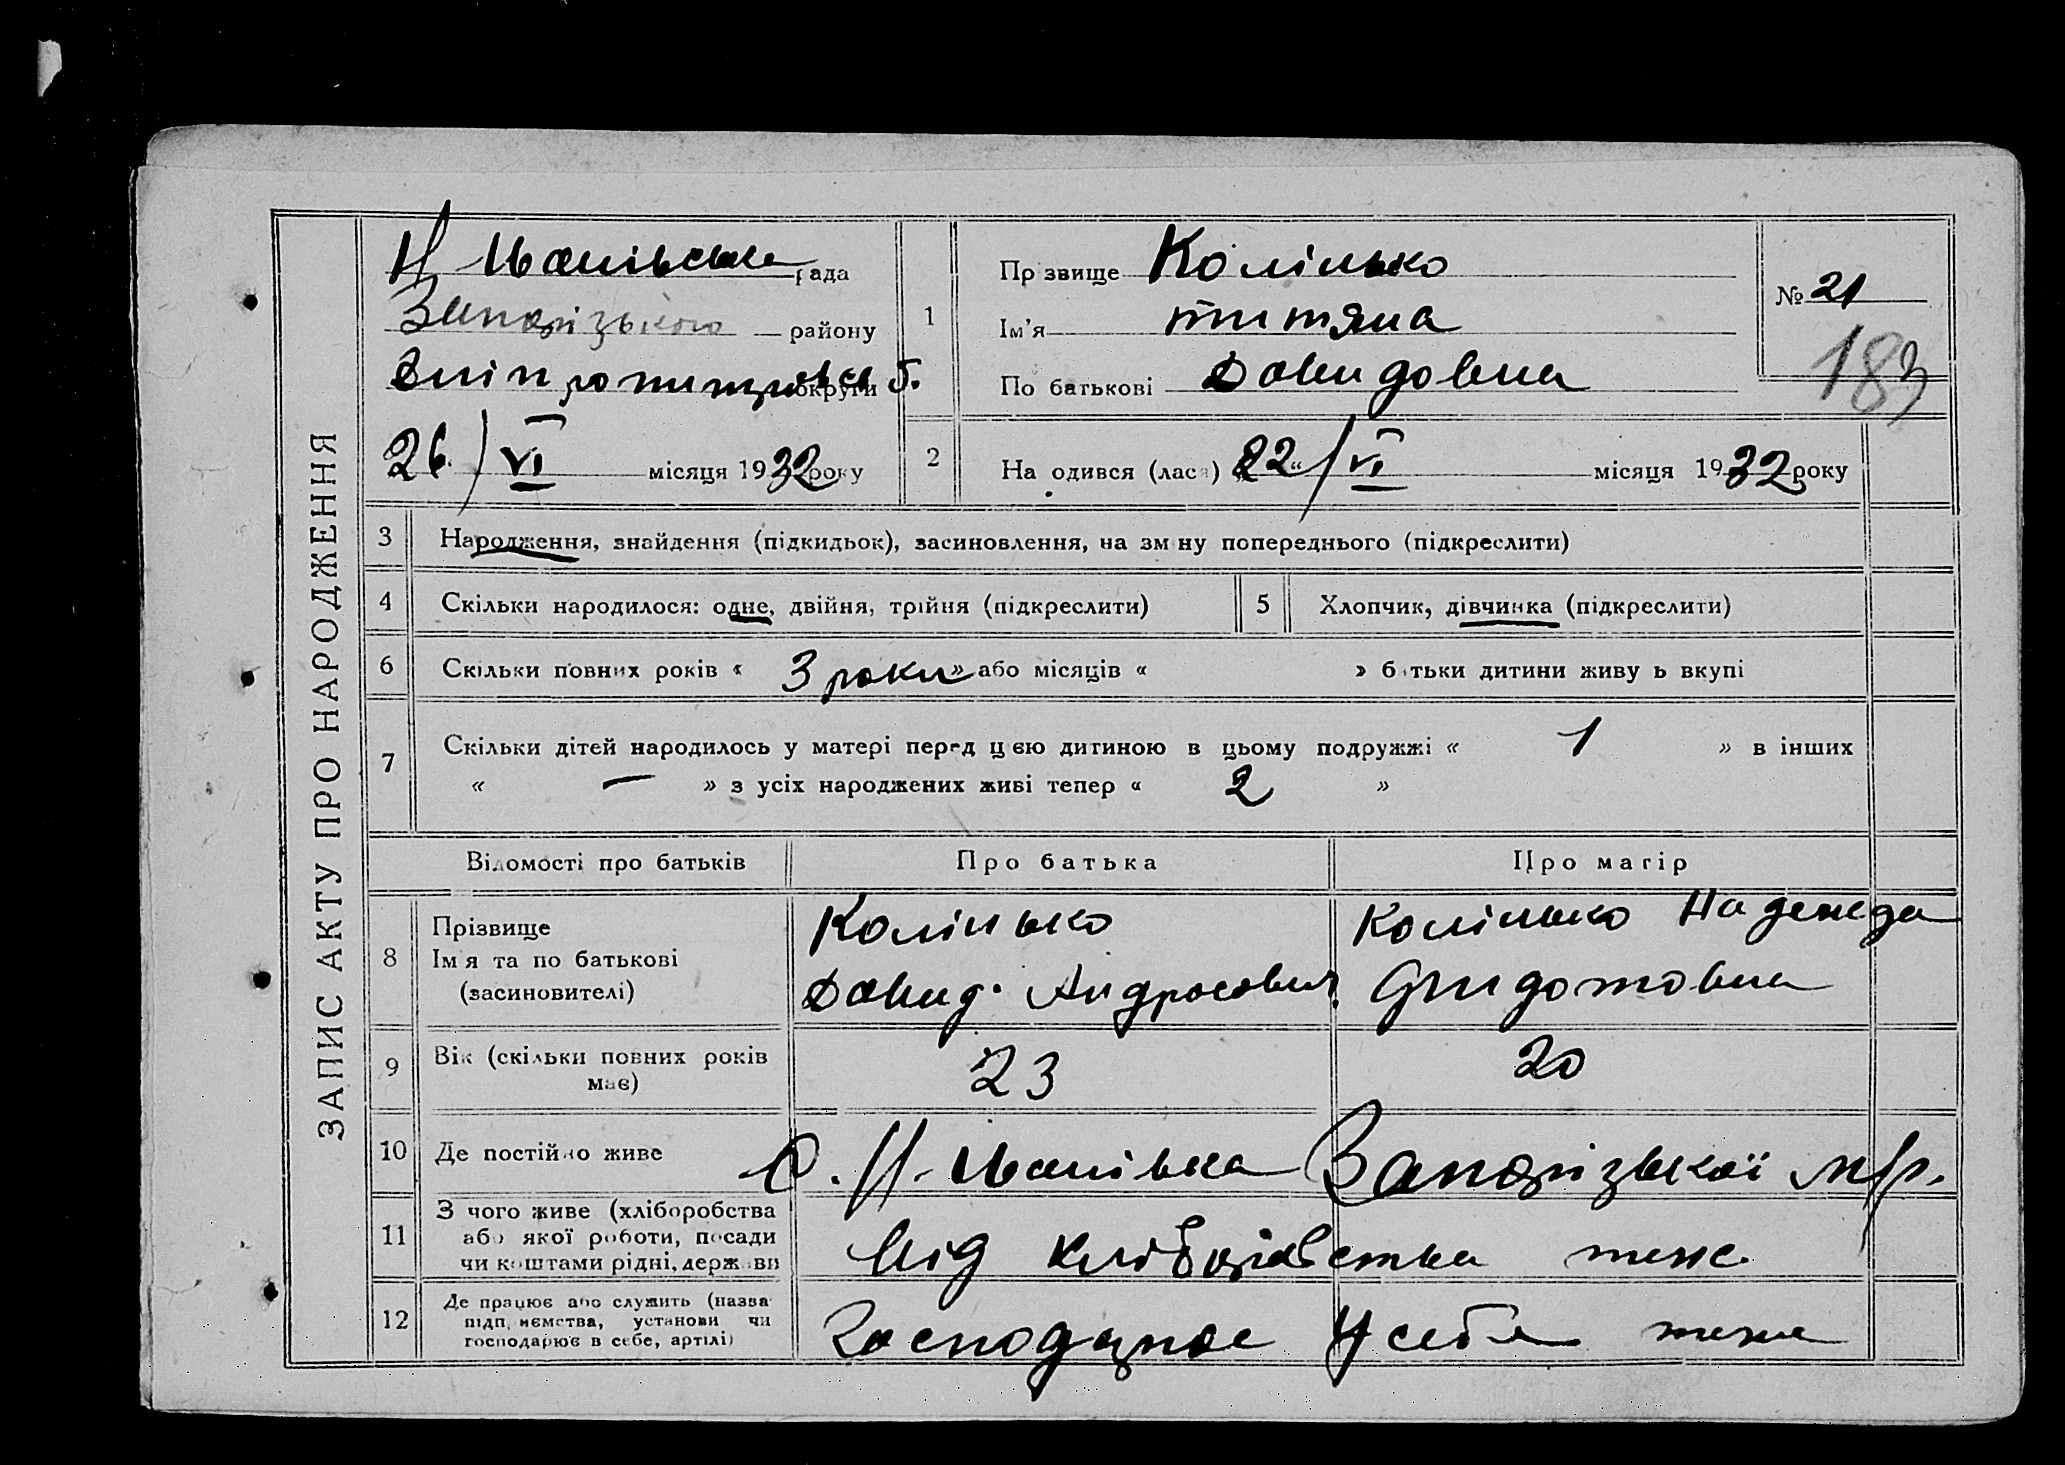 ЗАПИС АКТУ ПРО НАРОДЖЕННЯ
Н-Іванівська рада
Запорізького району
округи
26/VI місяця 1932 року
1
Прізвище Колінько
Ім'я Титяна
По батькові Давидовна
№ 21
183
2
На одився (лася) 22/VI місяця 1932 року
3
Народження, знайдення (підкидьок), засиновлення, на зм ну попереднього (підкреслити)
4
Скільки народилося: одне, двійня, трійня (підкреслити)
5
Хлопчик, дівчинка (підкреслити)
6
Скільки повних років « 3 роки » або місяців « » батьки дитини живу ь вкупі
7
Скільки дітей народилось у матері перед цією дитиною в цьому подружжі « 1 » в інших
« — » з усіх народжених живі тепер « 2 »
Відомості про батьків
Про батька
Про матір
8
Прізвище
Ім я та по батькові
(засиновителі)
Колінько
Давид
Колінько Надежда
9
Вік (скільки повних років
має)
23
20
10
Де постійно живе
с. Н-Іванівка Запорізької м/р.
11
З чого живе (хліборобства
або якої роботи, посади
чи коштами рідні, держави
Від хліборобства теж
12
Де працює або служить (назва
підп иємства, установи чи
господарює в себе, артілі)
Господарює у себе теж